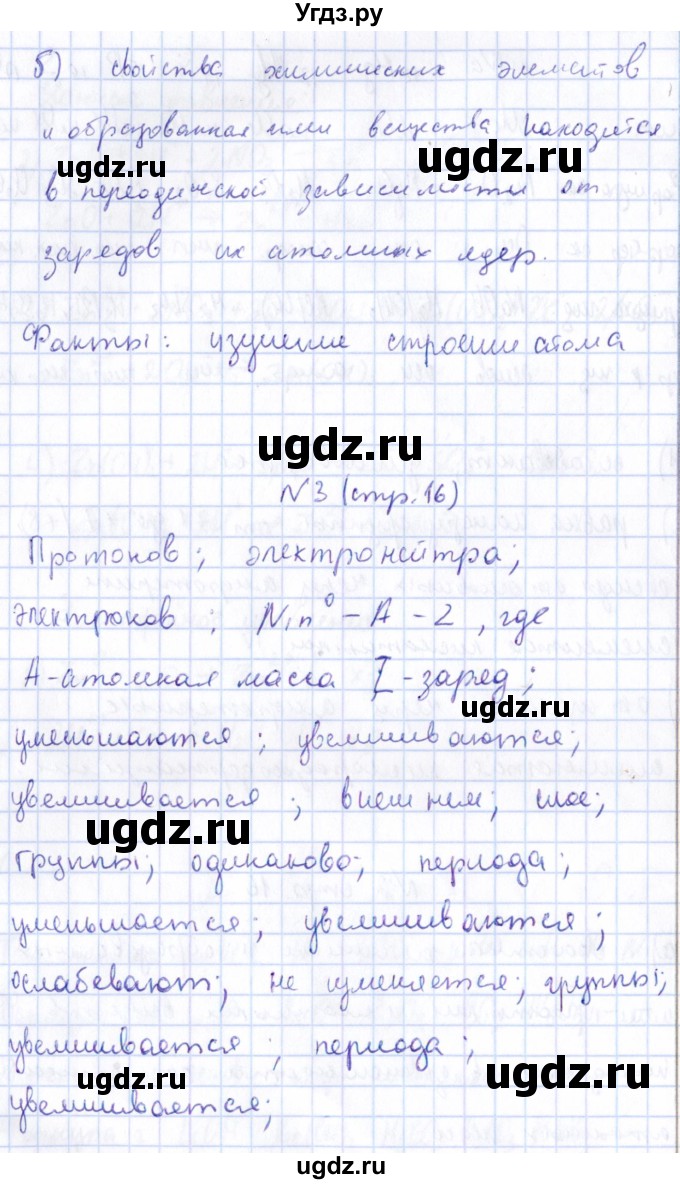 Угдз.ру
б) свойства химических элементов
и образованная ими вещества находится
ugdz.ru ugdz.ru
в периодической зависимости от
зарядов их атомных ядер.
Факты: изучение строение атома
ugdz.ru
N3 (стр. 16)
Протонов; электронейтра;
ugdz.ru
электронов; N₁n⁰-A-2, где
A-атомная масса Z-заряд;
ugdz.ru
уменьшаются; увеличиваются;
увеличивается; внешнем; слое;
ugdz.ru
группы; одинаково; периода;
уменьшается; увеличиваются;
ослабевают; не изменяется; группы;
увеличивается; периода;
ugdz.ru ugdz.ru
увеличивается;
ugdz.ru